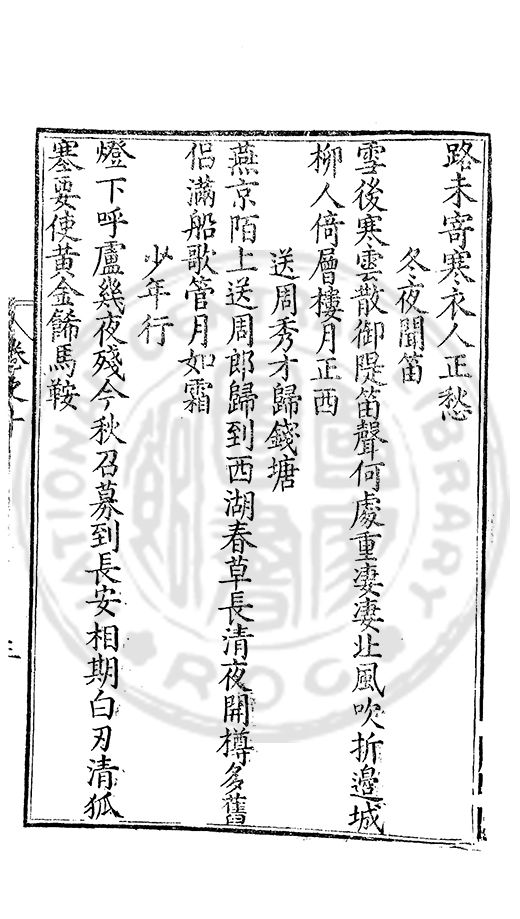 路未寄寒衣人正愁
冬夜聞笛
雪後寒雲散御隄笛聲何處重凄凄北風吹折邊城
柳人倚層樓月正西
送周秀才歸錢塘
燕京陌上送周郎歸到西湖春草長清夜開樽多舊
侶滿船歌管月如霜
少年行
燈下呼盧幾夜殘今秋召募到長安相期白刃清狐
塞要使黃金餙馬鞍
卷之十
三